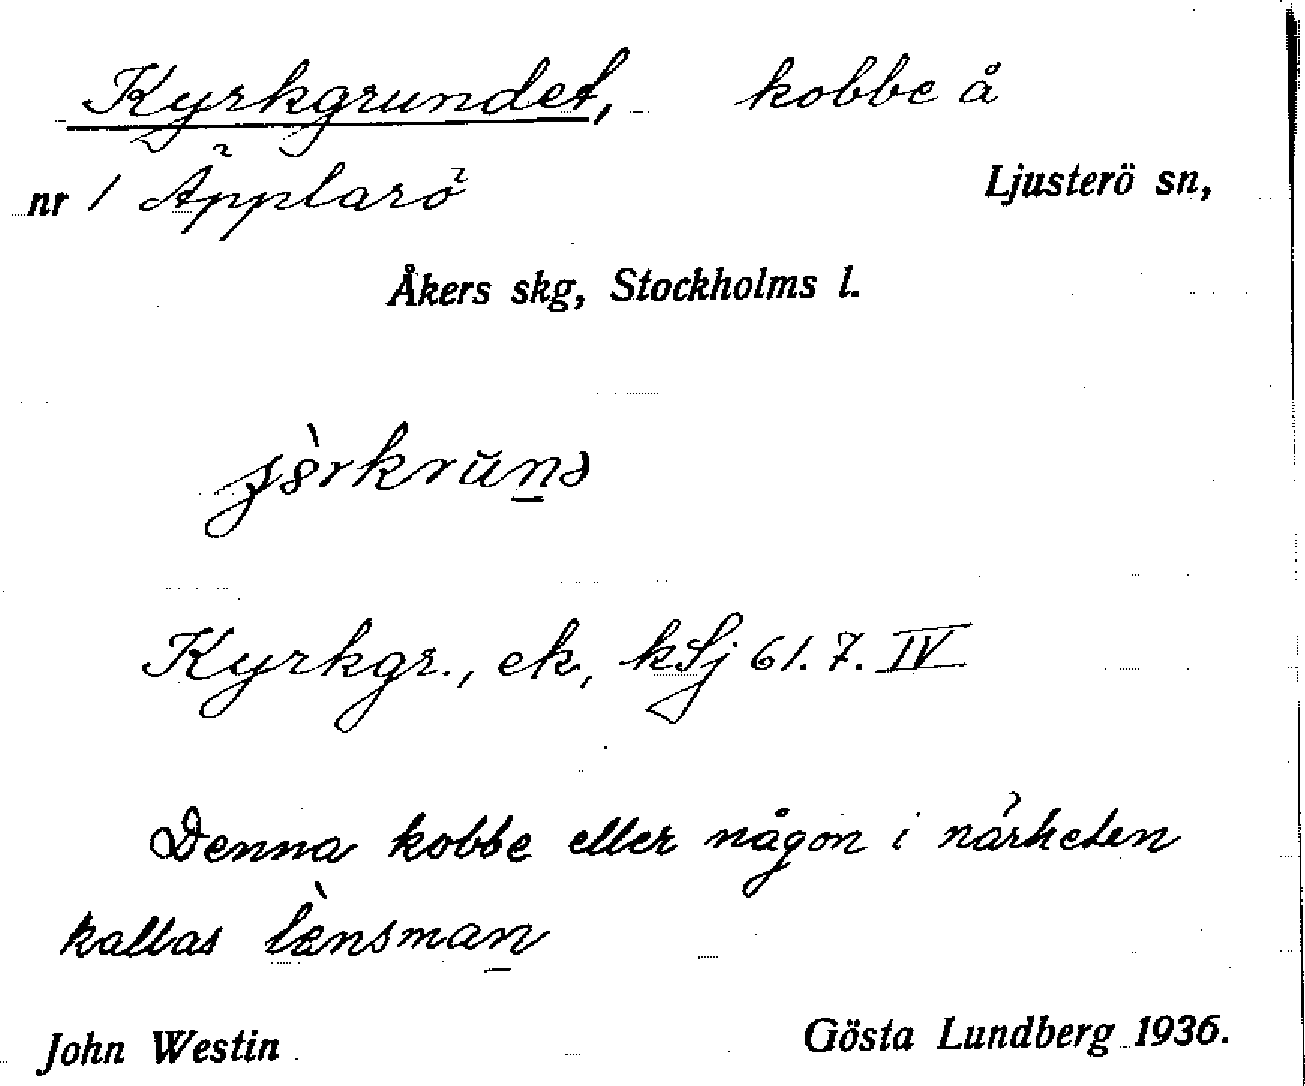 Kyrkgrundet, kobbe å
nr 1 Äpplarö Ljusterö sn,
Åkers skg, Stockholms l.
Kyrkgr., ek, kSj 61. 7. IV
Denna kobbe eller någon i närheten
kallas lὲnsman
John Westin Gösta Lundberg 1936.